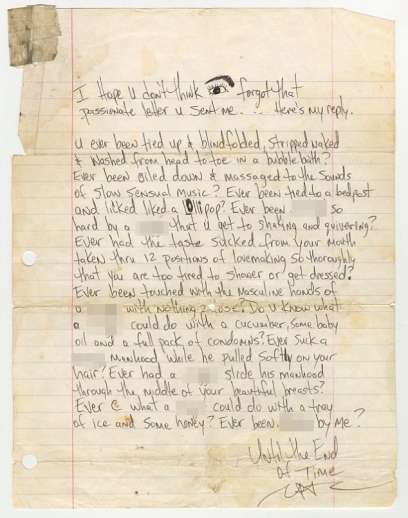 I Hope u don't think forgot that
passionate letter u sent me.... Here's my reply.
u ever been tied up & blindfolded, stripped naked
& washed from head to toe in a bubble bath?
Ever been oiled down & massaged to the sounds
of slow sensual music? Ever been tied to a bedpost
and licked liked a lollipop? Ever been so
hard by a that u get to shaking and quivering?
Ever had the taste sucked from your mouth
taken thru 12 positions of lovemaking so thoroughly
that you are too tired to shower or get dressed?
Ever been touched with the masculine hands of
a with nothing 2 lose? Do u know what
a could do with a cucumber, some baby
oil and a full pack of condomns? Ever suck a
manhood while he pulled softly on your
hair? Ever had a slide his manhood
through the middle of your beautiful breasts?
Ever C what a could do with a tray
of ice and some honey? Ever been by me?
Until the End
of Time